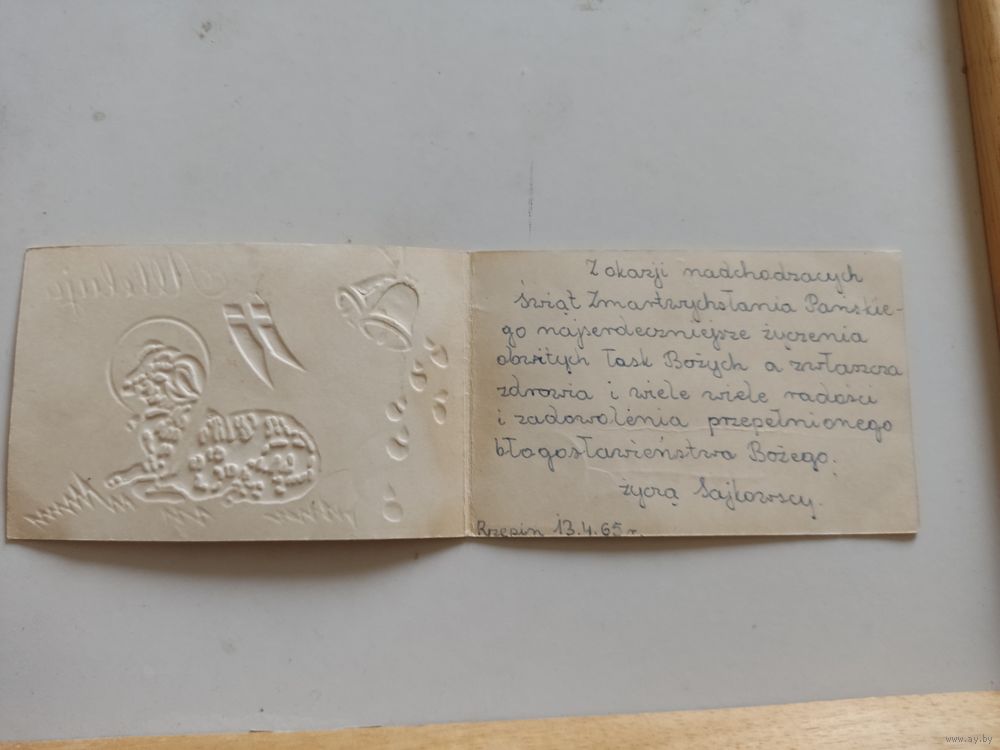 Alleluja
Z okazji nadchodzacych
świąt Zmartwychstania Pańskie-
go najserdeczniejsze życzenia
obfitych łask Bożych a zwłaszcza
zdrowia i wiele wiele radości
i zadowolenia przepełnionego
błogosławieństwa Bożego.
życzą Sajkowscy.
Rzepin 13.4.65 r.
www.ay.by